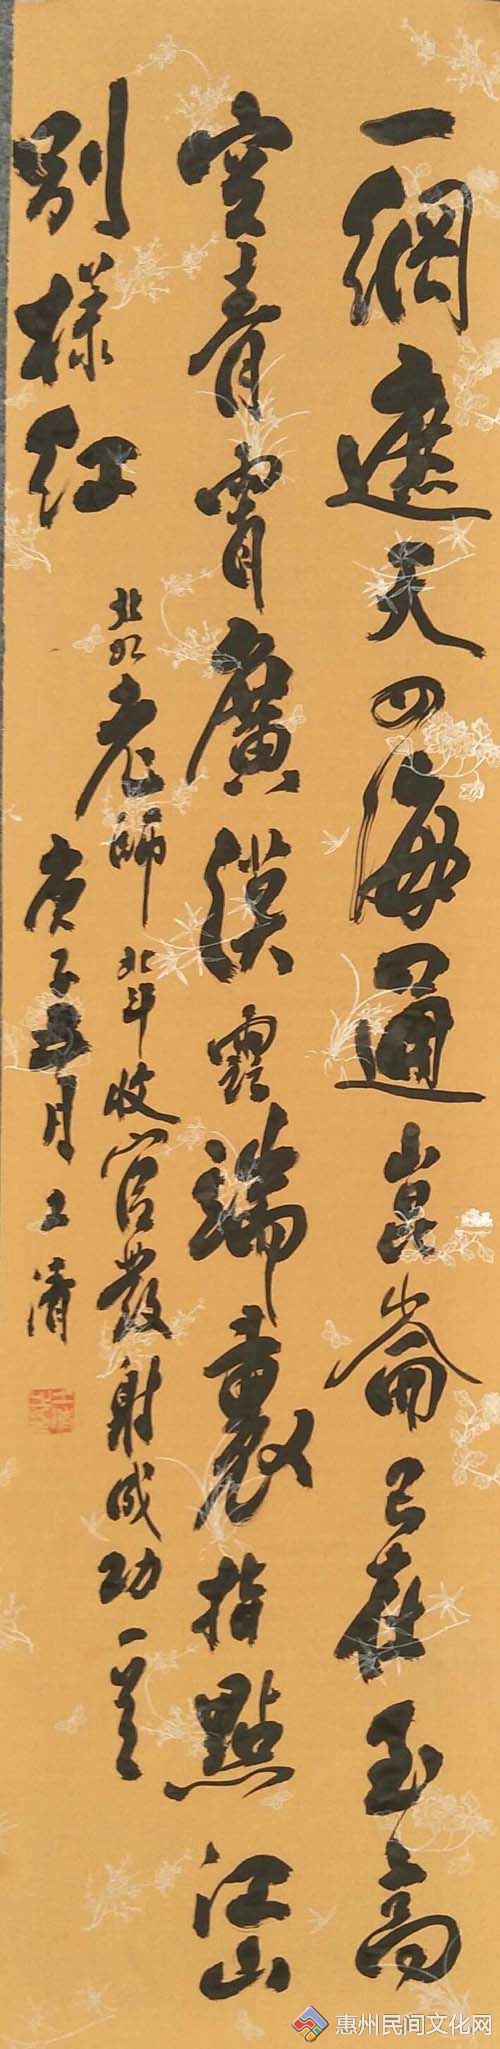 一網遮天四海通崑崙已在至高
空青霄廣漠雲端裏指點江山
別樣红
老師北斗收官發射成功一
庚子五月
惠州民间文化网